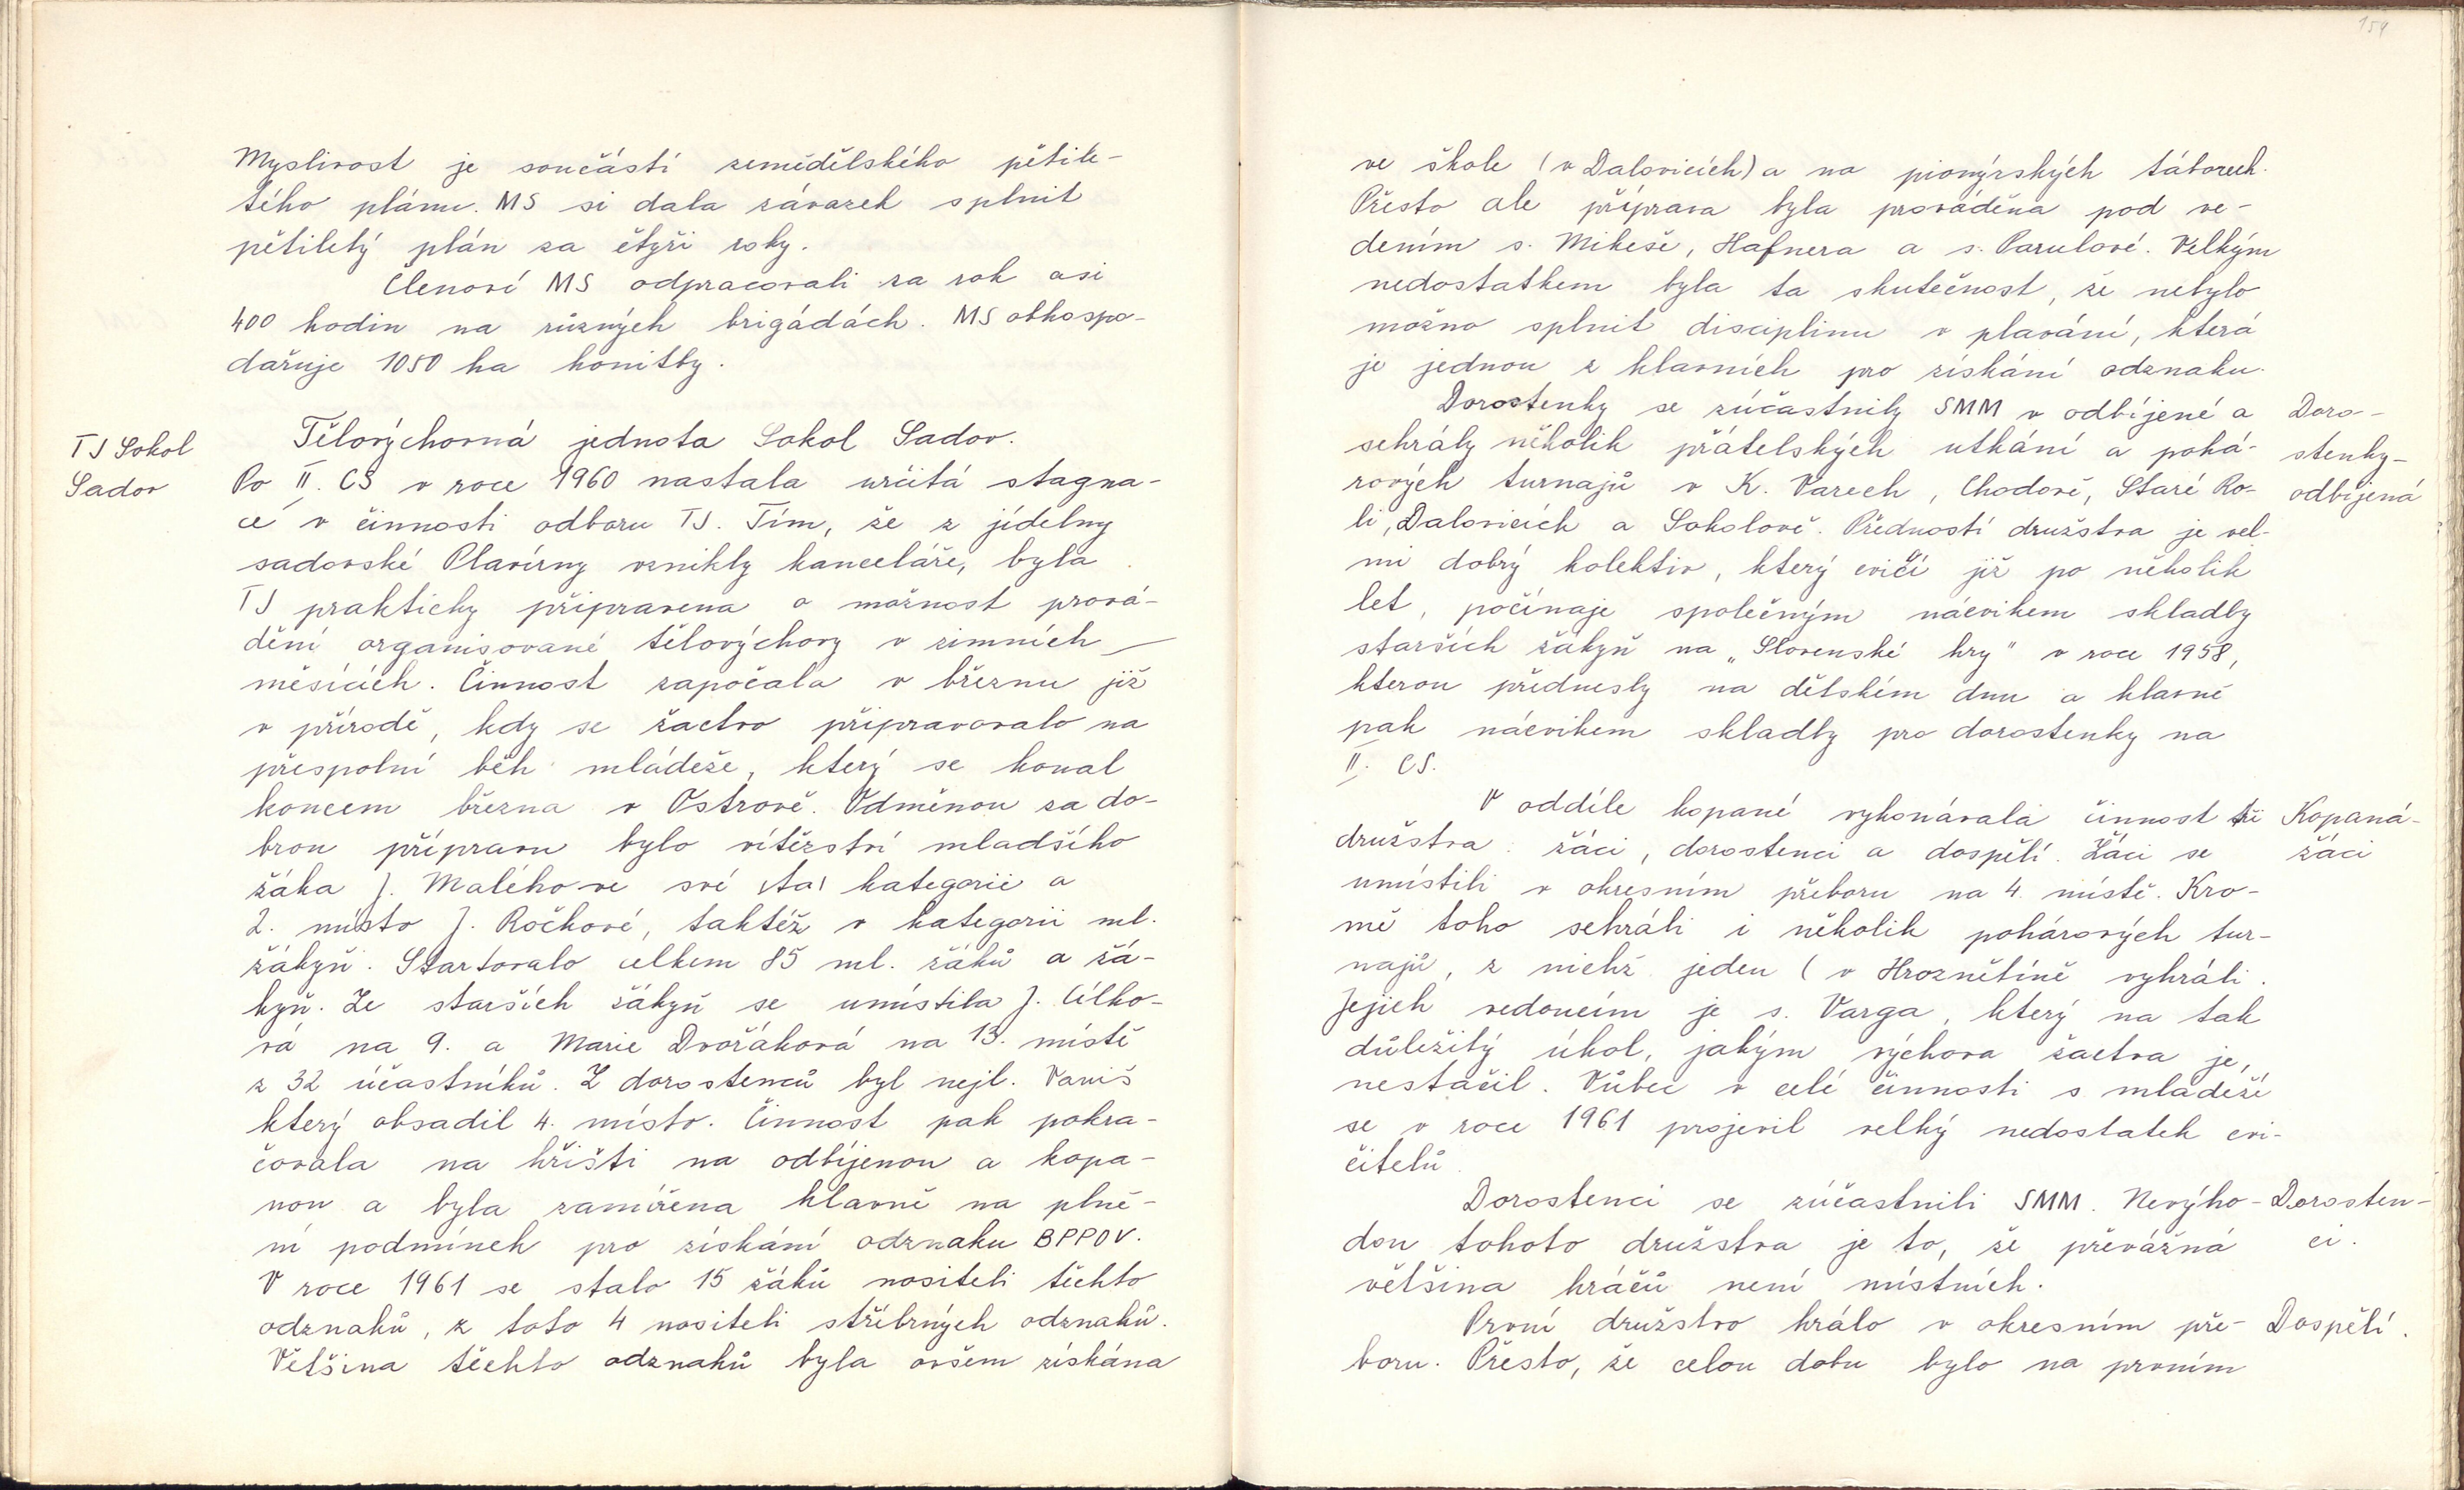 Myslivost je součástí zemědělského pětile-
tého plánu. MS si dala závazek splnit
pětiletý plán za čtyři roky.
Členové MS odpracovali za rok asi
400 hodin na různých brigádách. MS obhospo-
dařuje 1050 ha honitby.
TJ Sokol
Sadov
Tělovýchovná jednota Sokol Sadov.
Po II. CS v roce 1960 nastala určitá stagna-
ce v činnosti odboru TJ. Tím, že z jídelny
sadovské Plavírny vznikly kanceláře, byla
TJ prakticky připravena o možnost prová-
dění organisované tělovýchovy v zimních
měsících. Činnost započala v březnu již
v přírodě, kdy se žactvo připravovalo na
přespolní běh mládeže, který se konal
koncem března v Ostrově. Odměnou za do-
brou přípravu bylo vítězství mladšího
žáka J. Malého ve své kategorii a
2. místo J. Ročkové, taktéž v kategorii ml.
žákyň. Startovalo celkem 85 ml. žáků a žá-
kyň. Ze starších žákyň se umístila J. Cílko-
vá na 9. a Marie Dvořáková na 13. místě
z 32 účastníků. Z dorostenců byl nejl. Vaniš
který obsadil 4. místo. Činnost pak pokra-
čovala na hřišti na odbíjenou a kopa-
nou a byla zamířena hlavně na plně-
ní podmínek pro získání odznaku BPPOV.
V roce 1961 se stalo 15 žáků nositeli těchto
odznaků, z toto 4 nositeli stříbrných odznaků.
Většina těchto odznaků byla ovšem získána
159
ve škole (v Dalovicích) a na pionýrských táborech.
Přesto ale příprava byla prováděna pod ve-
dením s. Mikeše, Hafnera a s. Parulové. Velkým
nedostatkem byla ta skutečnost, že nebylo
možno splnit disciplinu v plavání, která
je jednou z hlavních pro získání odznaku.
Dorostenky se zúčastnily SMM v odbíjené a
sehrály několik přátelských utkání a pohá-
rových turnajů v K. Varech, Chodově, Staré Ro-
li, Dalovicích a Sokolově. Předností družstva je vel-
mi dobrý kolektiv, který cvičí již po několik
let, počínaje společným nácvikem skladby
starších žákyň na "Slovenské hry" v roce 1958,
kterou přednesly na dětském dnu a hlavně
pak nácvikem skladby pro dorostenky na
II. CS.
Doro-
stenky-
odbíjená
V oddíle kopané vykonávala činnost tři
družstva: žáci, dorostenci a dospělí. Žáci se
umístili v okresním přeboru na 4. místě. Kro-
mě toho sehráli i několik pohárových tur-
najů, z nichž jeden (v Hroznětíně vyhráli.
Jejich vedoucím je s. Varga, který na tak
důležitý úkol, jakým výchova žactva je,
nestačil. Vůbec v celé činnosti s mládeží
se v roce 1961 projevil velký nedostatek cvi-
čitelů.
Kopaná-
žáci
Dorostenci se zúčastnili SMM. Nevýho-
dou tohoto družstva je to, že převážná
většina hráčů není místních.
Dorosten-
ci.
První družstvo hrálo v okresním pře-
boru. Přesto, že celou dobu bylo na prvním
Dospělí.